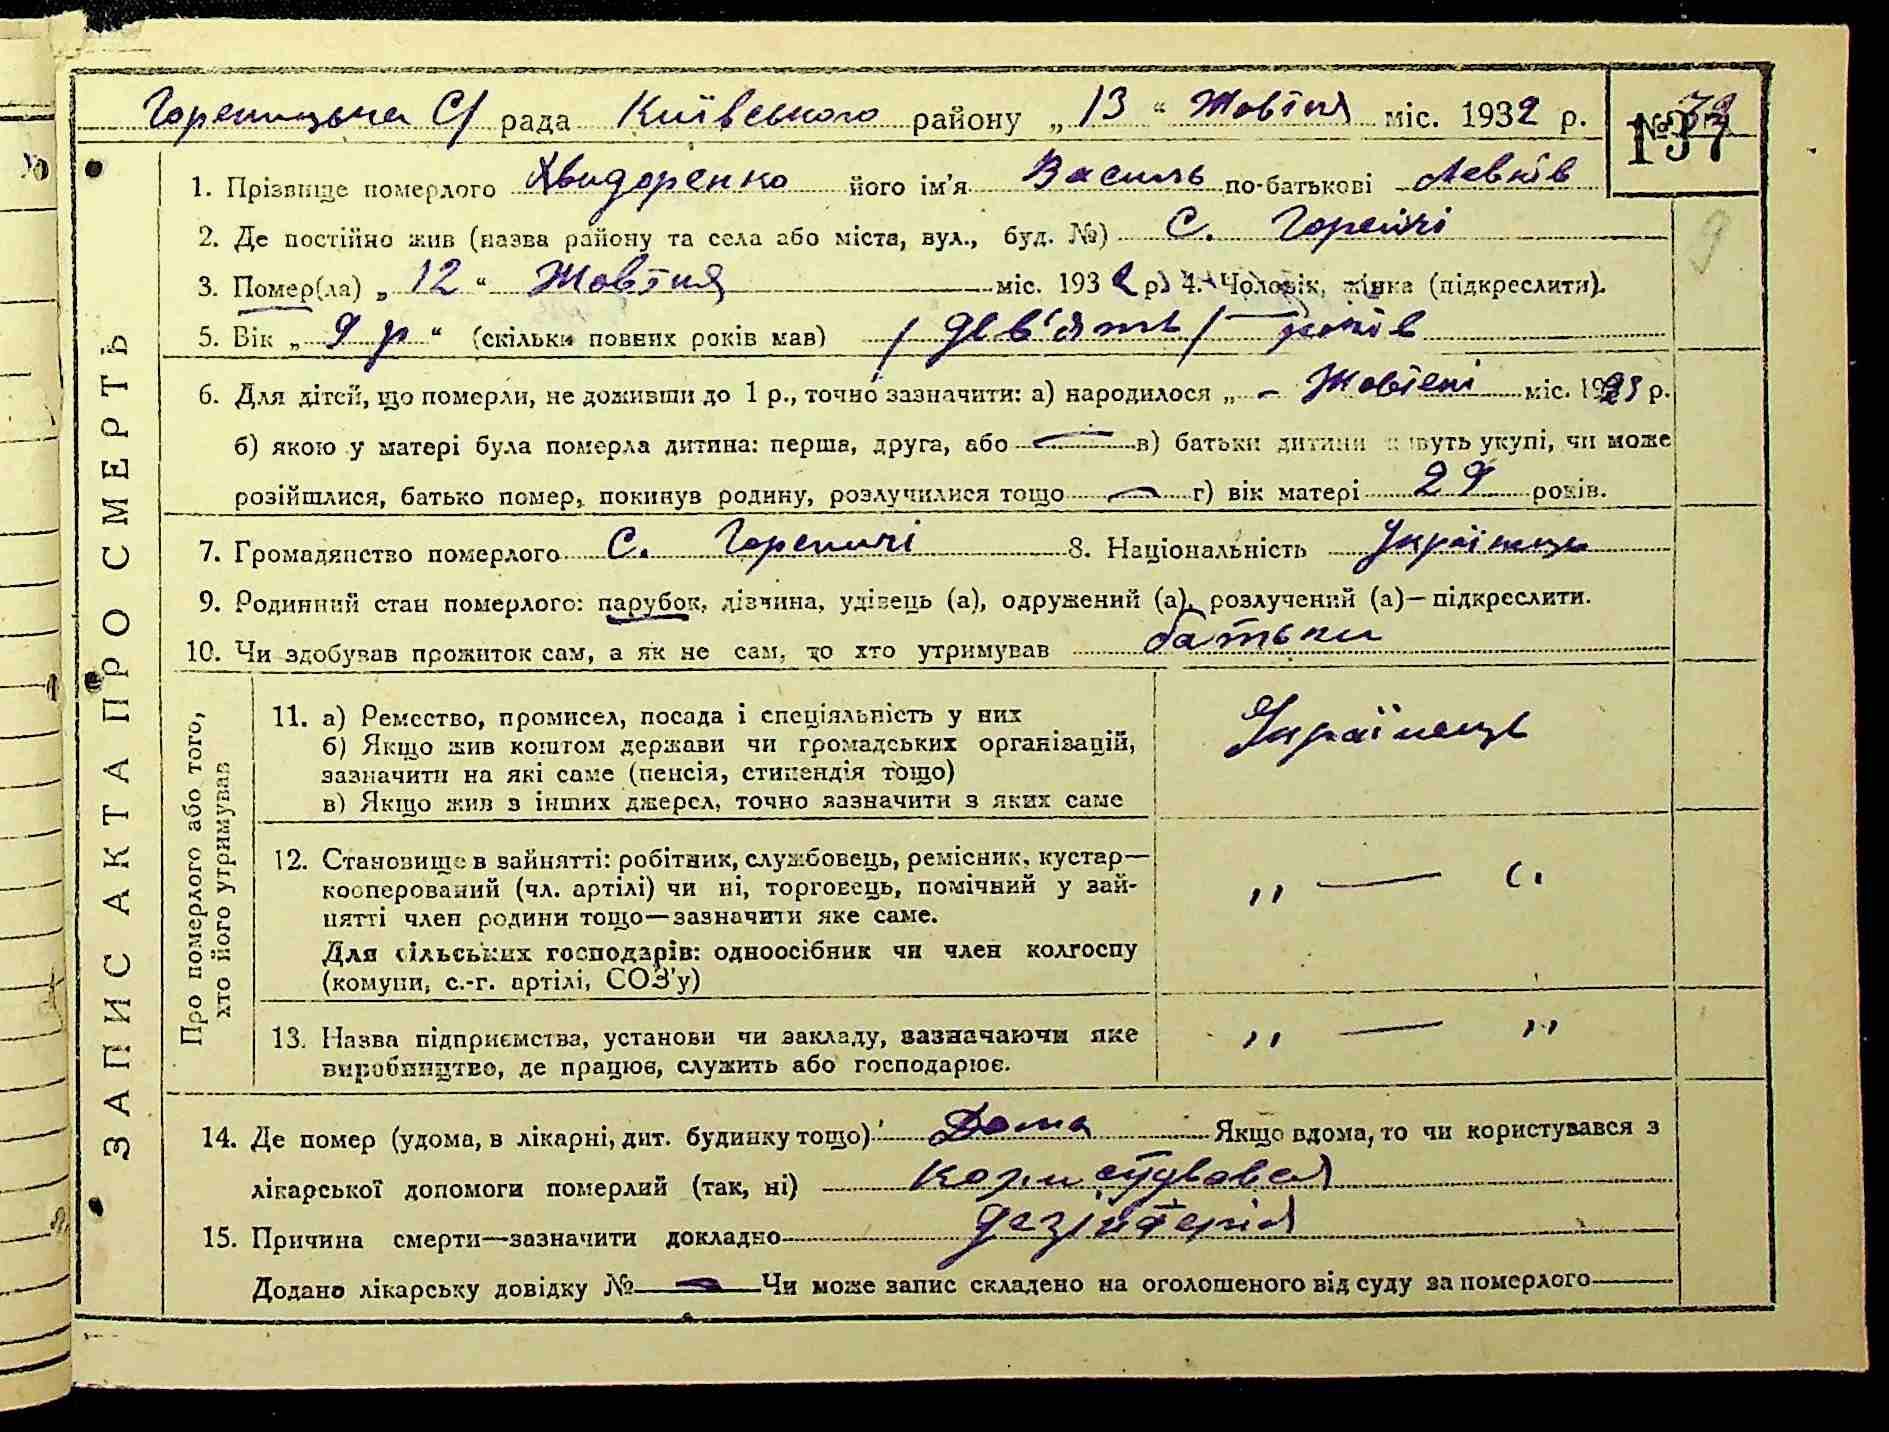 Гореницька С/ рада Київського району „ 13 “ Жовтня міс. 1932 р.
№ 137
1. Прізвище померлого Хвидоренко його ім'я Василь по-батькові Левків
2. Де постійно жив (назва району та села або міста, вул., буд. №) С. Горе
3. Помер(ла) „ 12 “ Жовтня міс. 1932 р. 4. Чоловік, жінка (підкреслити).
5. Вік „ 9 р “ (скільки повних років мав) / дев'ять / років
6. Для дітей, що померли, не доживши до 1 р., точно зазначити: а) народилося „ – Жовтені міс. 1923 р.
б) якою у матері була померла дитина: перша, друга, або — в) батьки дитини живуть укупі, чи може
розійшлися, батько помер, покинув родину, розлучилися тощо — г) вік матері 29 років.
7. Громадянство померлого С. Горепичі 8. Національність Українець
9. Родинний стан померлого: парубок, дівчина, удівець (а), одружений (а), розлучений (а)—підкреслити.
10. Чи здобував прожиток сам, а як не сам, то хто утримував батьки
ЗАПИС АКТА ПРО СМЕРТЬ
Про померлого або того,
хто його утримував
11. а) Ремество, промисел, посада і спеціяльність у них
б) Якщо жив коштом держави чи громадських організацій,
зазначити на які саме (пенсія, стипендія тощо)
в) Якщо жив з інших джерел, точно зазначити з яких саме
Українець
12. Становище в зайнятті: робітник, службовець, ремісник, кустар—
кооперований (чл. артілі) чи ні, торговець, помічний у зай-
нятті член родини тощо—зазначити яке саме.
Для сільських господарів: одноосібник чи член колгоспу
(комуни, с.-г. артілі, СОЗ'у)
„ — с.
13. Назва підприємства, установи чи закладу, зазначаючи яке
виробництво, де працює, служить або господарює.
„ — „
14. Де помер (удома, в лікарні, дит. будинку тощо) Дома Якщо вдома, то чи користувався з
лікарської допомоги померлий (так, ні) користувався
15. Причина смерти—зазначити докладно дезінтерія
Додано лікарську довідку № — Чи може запис складено на оголошеного від суду за померлого
9